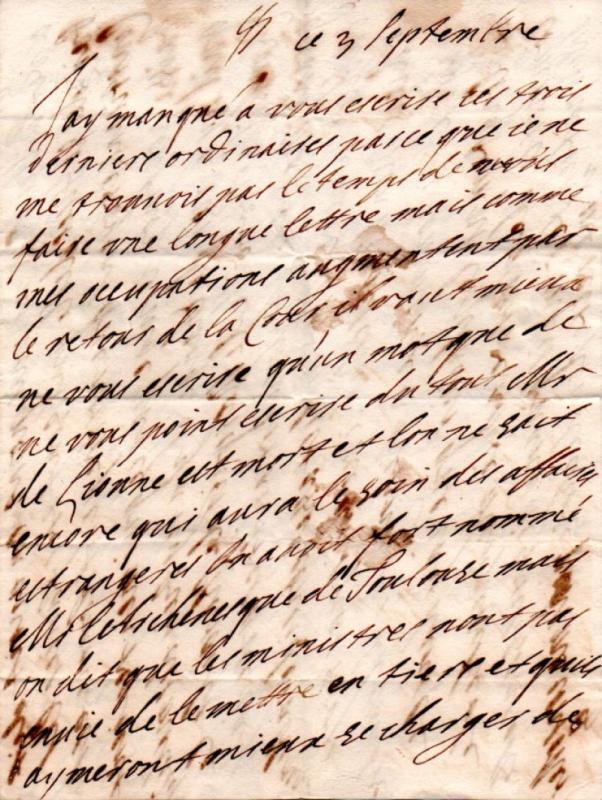 ce 3 septembre
Jay manqué a vous escrire ces trois
derniers ordinaires parce que ie ne
me trouuois pas le temps de vous
faire vne longue lettre mais comme
mes occupations augmentent par
le retour de la Cour il vaut mieux
ne vous escrire qu'un mot que de
ne vous point escrire du tout Mr
de Lionne est mort et lon ne sait
encore qui aura le soin des affaires
estrangeres On auoit fort nommé
Mr de Toulouze mais
on dit que les ministres nont pas
enuie de le mettre en tiers et quils
aymeront mieux se charger de